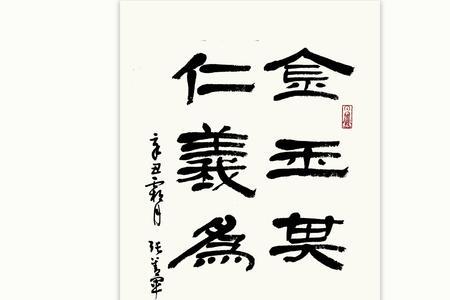 金玉其
仁義為
辛丑霜月 张